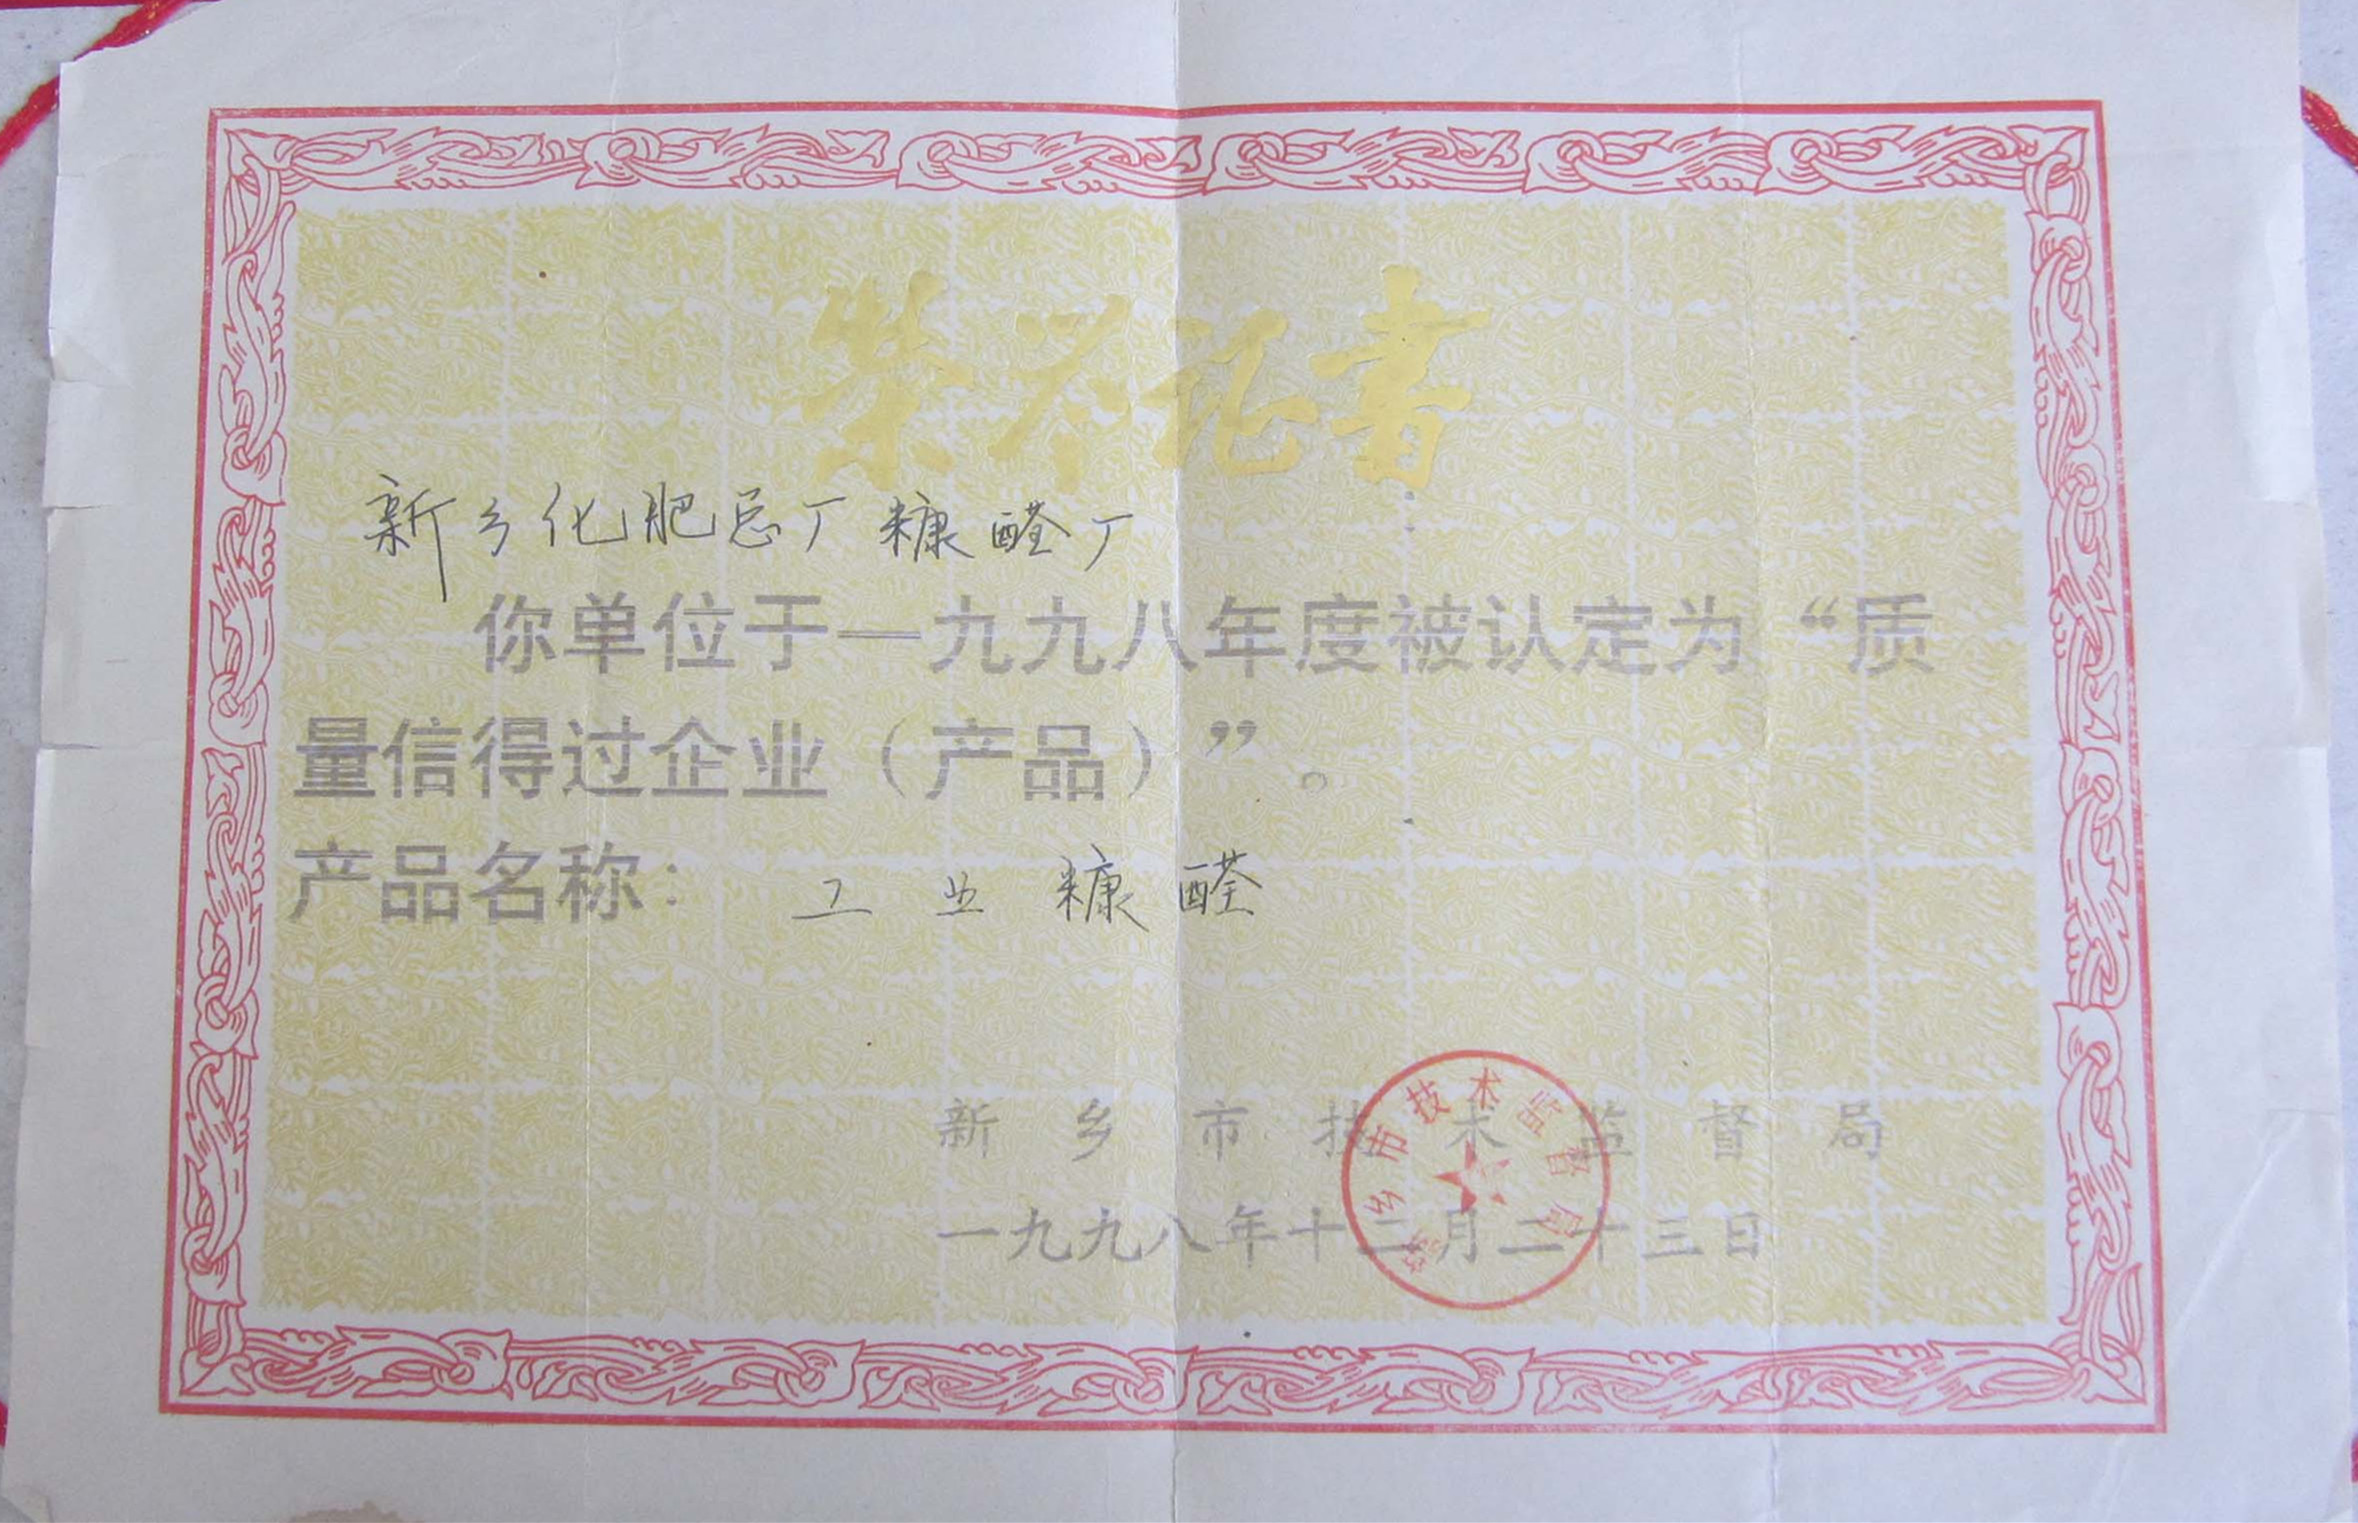 荣誉证书
新乡化肥总厂糠醛厂
你单位于一九九八年度被认定为“质
量信得过企业（产品）”。
产品名称：工业糠醛
新乡市技术监督局
一九九八年十二月二十三日
新乡市技术监督局